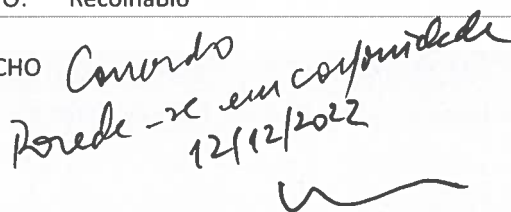 O: Recolhabio
CHO Concordo
Procede-se em conformidade
12/12/2022